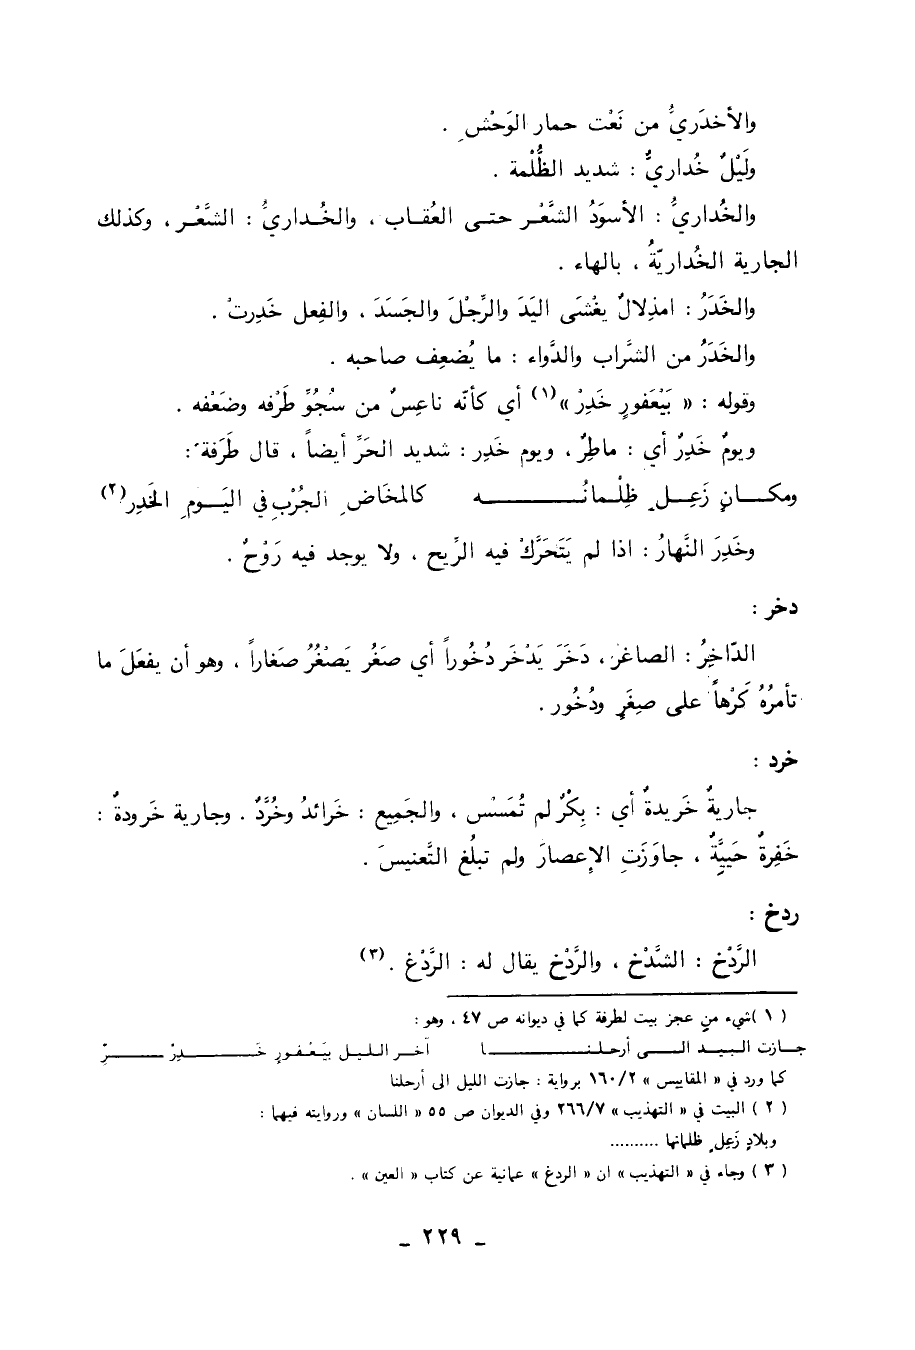 والأخدَريُّ من نَعْت حمار الوَحْشِ .
ولَيْلٌ خُداريٌّ : شديد الظُّلْمة .
والخُداريُّ : الأسوَدُ الشَّعْر حتى العُقاب ، والخُداريُّ : الشَّعْر ، وكذلك
الجارية الخُداريّةُ ، بالهاء .
والخَدَرُ : امذِلالٌ يغْشَى اليَدَ والرِّجْلَ والجَسَدَ ، والفِعل خَدِرتْ .
والخَدَرُ من الشَّراب والدَّواء : ما يُضعِف صاحبه .
وقوله : « بَيْعَفورٍ خَدِرْ »(١) أي كأنّه ناعِسٌ من سُجُوِّ طَرْفه وضَعْفه .
ويومٌ خَدِرٌ أي : ماطِرٌ ، ويوم خَدِر : شديد الحَرِّ أيضاً ، قال طَرَفة َ :
ومكانٍ زَعِلٍ ظِلْمانُه كالمخَاضِ الجُرْبِ في اليَومِ الخَدِر(٢)
وخَدِرَ النَّهارُ : اذا لم يَتَحَرَّكْ فيه الرِّيح ، ولا يوجد فيه رَوْحٌ .
دخر :
الدّاخِرُ : الصاغر ، دَخَرَ يَدْخَر دُخُوراً أي صَغُر يَصْغُرُ صَغاراً ، وهو أن يفعَلَ ما
تأمرُهُ كَرْهاً على صِغَرٍ ودُخُور .
خرد :
جاريةٌ خَريدةٌ أي : بِكْرٌ لم تُمَسْس ، والجَمِيع : خَرائدُ وخُرَّدٌ . وجارية خَرودةٌ :
خَفِرةٌ حَيِيَّةٌ ، جاوَزَتِ الإعصارَ ولم تبلُغ التَّعنيسَ .
ردخ :
الرَّدْخ : الشَّدْخ ، والرَّدْخ يقال له : الرَّدْغ .(٣)
( ١ )شيء من عجز بيت لطرفة كما في ديوانه ص ٤٧ ، وهو :
جازت البيد الى أرحلنا آخر الليل بيَعْفورٍ خَدِرْ
كما ورد في « المقاييس » ١٦٠/٢ برواية : جازت الليل الى أرحلنا
( ٢ ) البيت في « التهذيب » ٢٦٦/٧ وفي الديوان ص ٥٥ « اللسان » وروايته فيهما :
وبلادٍ زَعِلٍ ظلمانها ..........
( ٣ ) وجاء في « التهذيب » ان « الردغ » عمانية عن كتاب « العين » .
ـ ٢٢٩ ـ